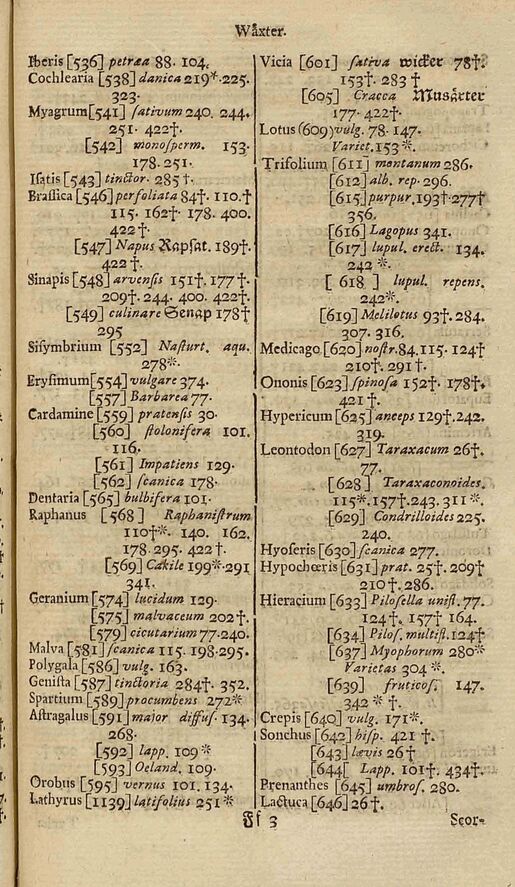 Wåxter.
Iberis [536] petræa 88. 104.
Cochlearia [538] danica 219*. 225.
323.
Myagrum [541] ſativum 240. 244.
251. 422†.
[542] monoſperm. 153.
178. 251.
Iſatis [543] tinctor. 285†.
Braſſica [546] perfoliata 84†. 110.†
115. 162†. 178. 400.
422†.
[547] Napus Rapſat. 189†.
422†.
Sinapis [548] arvenſis 151†. 177†.
209†. 244. 400. 422†.
[549] culinare Senap 178†
295
Siſymbrium [552] Naſturt. aqu.
278*.
Eryſimum [554] vulgare 374.
[557] Barbarea 77.
Cardamine [559] pratenſis 30.
[560] ſtolonifera 101.
116.
[561] Impatiens 129.
[562] ſcanica 178.
Dentaria [565] bulbifera 101.
Raphanus [568] Raphaniſtrum
110†*. 140. 162.
178. 295. 422†.
[569] Cakile 199*. 291
341.
Geranium [574] lucidum 129.
[575] malvaceum 202†.
[579] cicutarium 77. 240.
Malva [581] ſcanica 115. 198. 295.
Polygala [586] vulg. 163.
Geniſta [587] tinctoria 284†. 352.
Spartium [589] procumbens 272*
Aſtragalus [591] major diffuſ. 134.
268.
[592] lapp. 109*
[593] Oeland. 109.
Orobus [595] vernus 101. 134.
Lathyrus [1139] latifolius 251*
Vicia [601] ſativa wicker 78†.
153†. 283†
[605] Cracca Musärter
177. 422†.
Lotus (609) vulg. 78. 147.
Variet. 153*.
Trifolium [611] montanum 286.
[612] alb. rep. 296.
[615] purpur. 193†. 277†
356.
[616] Lagopus 341.
[617] lupul. erect. 134.
242*.
[ 618 ] lupul. repens.
242*.
[619] Melilotus 93†. 284.
307. 316.
Medicago [620] noſtr. 84. 115. 124†
210†. 291†.
Ononis [623] ſpinoſa 152†. 178†.
421†.
Hypericum [625] anceps 129†. 242.
319.
Leontodon [627] Taraxacum 26†.
77.
[628] Taraxaconoides.
115*. 157†. 243. 311*.
[629] Condrilloides 225.
240.
Hyoſeris [630] ſcanica 277.
Hypochœris [631] prat. 25†. 209†
210†. 286.
Hieracium [633] Piloſella uniſl. 77.
124†. 157† 164.
[634] Piloſ. multiſl. 124†
[637] Myophorum 280*
Varietas 304*.
[639] fruticoſ. 147.
342*†.
Crepis [640] vulg. 171*.
Sonchus [642] hiſp. 421†.
[643] lævis 26†
[644[ Lapp. 101†. 434†.
Prenanthes [645] umbroſ. 280.
Lactuca [646] 26†.
Ff 3 Scor-